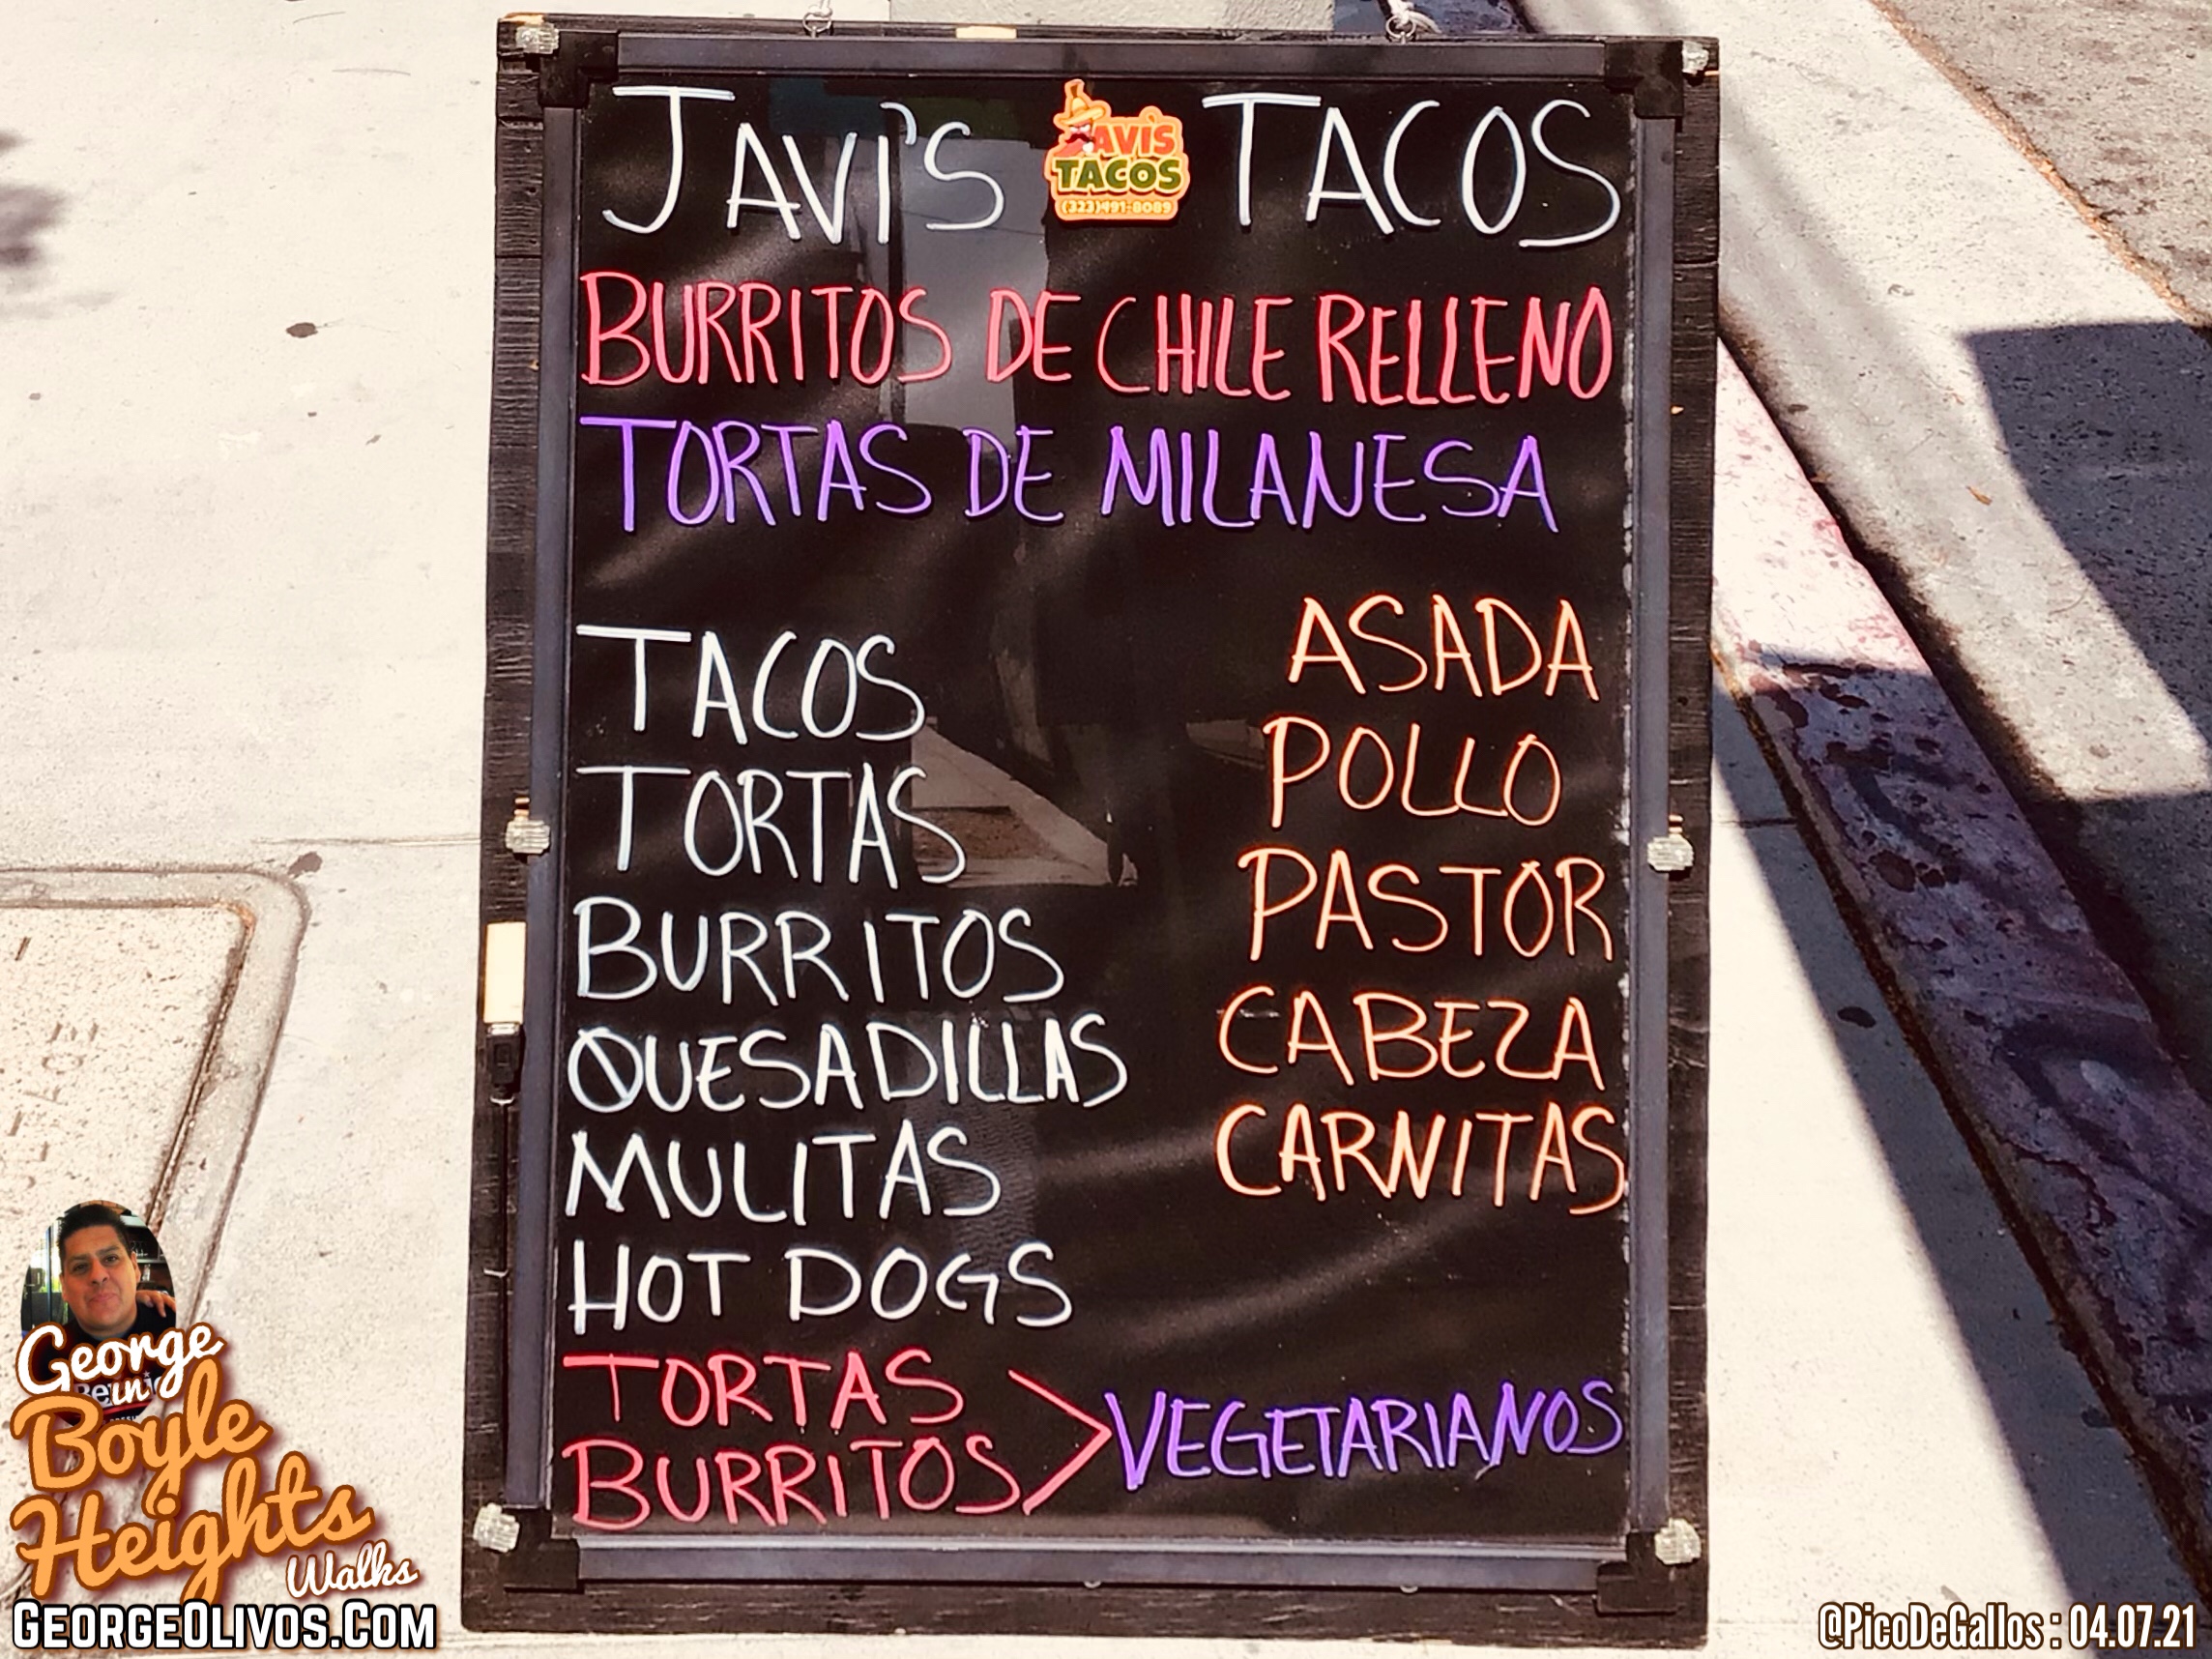 JAVI'S TACOS
JAVI'S
TACOS
(323)491-8089
BURRITOS DE CHILE RELLENO
TORTAS DE MILANESA
TACOS
TORTAS
BURRITOS
QUESADILLAS
MULITAS
HOT DOGS
ASADA
POLLO
PASTOR
CABEZA
CARNITAS
TORTAS
BURRITOS > VEGETARIANOS
George
in
Boyle
Heights
Walks
GEORGEOLIVOS.COM
@PicoDeGallos : 04.07.21